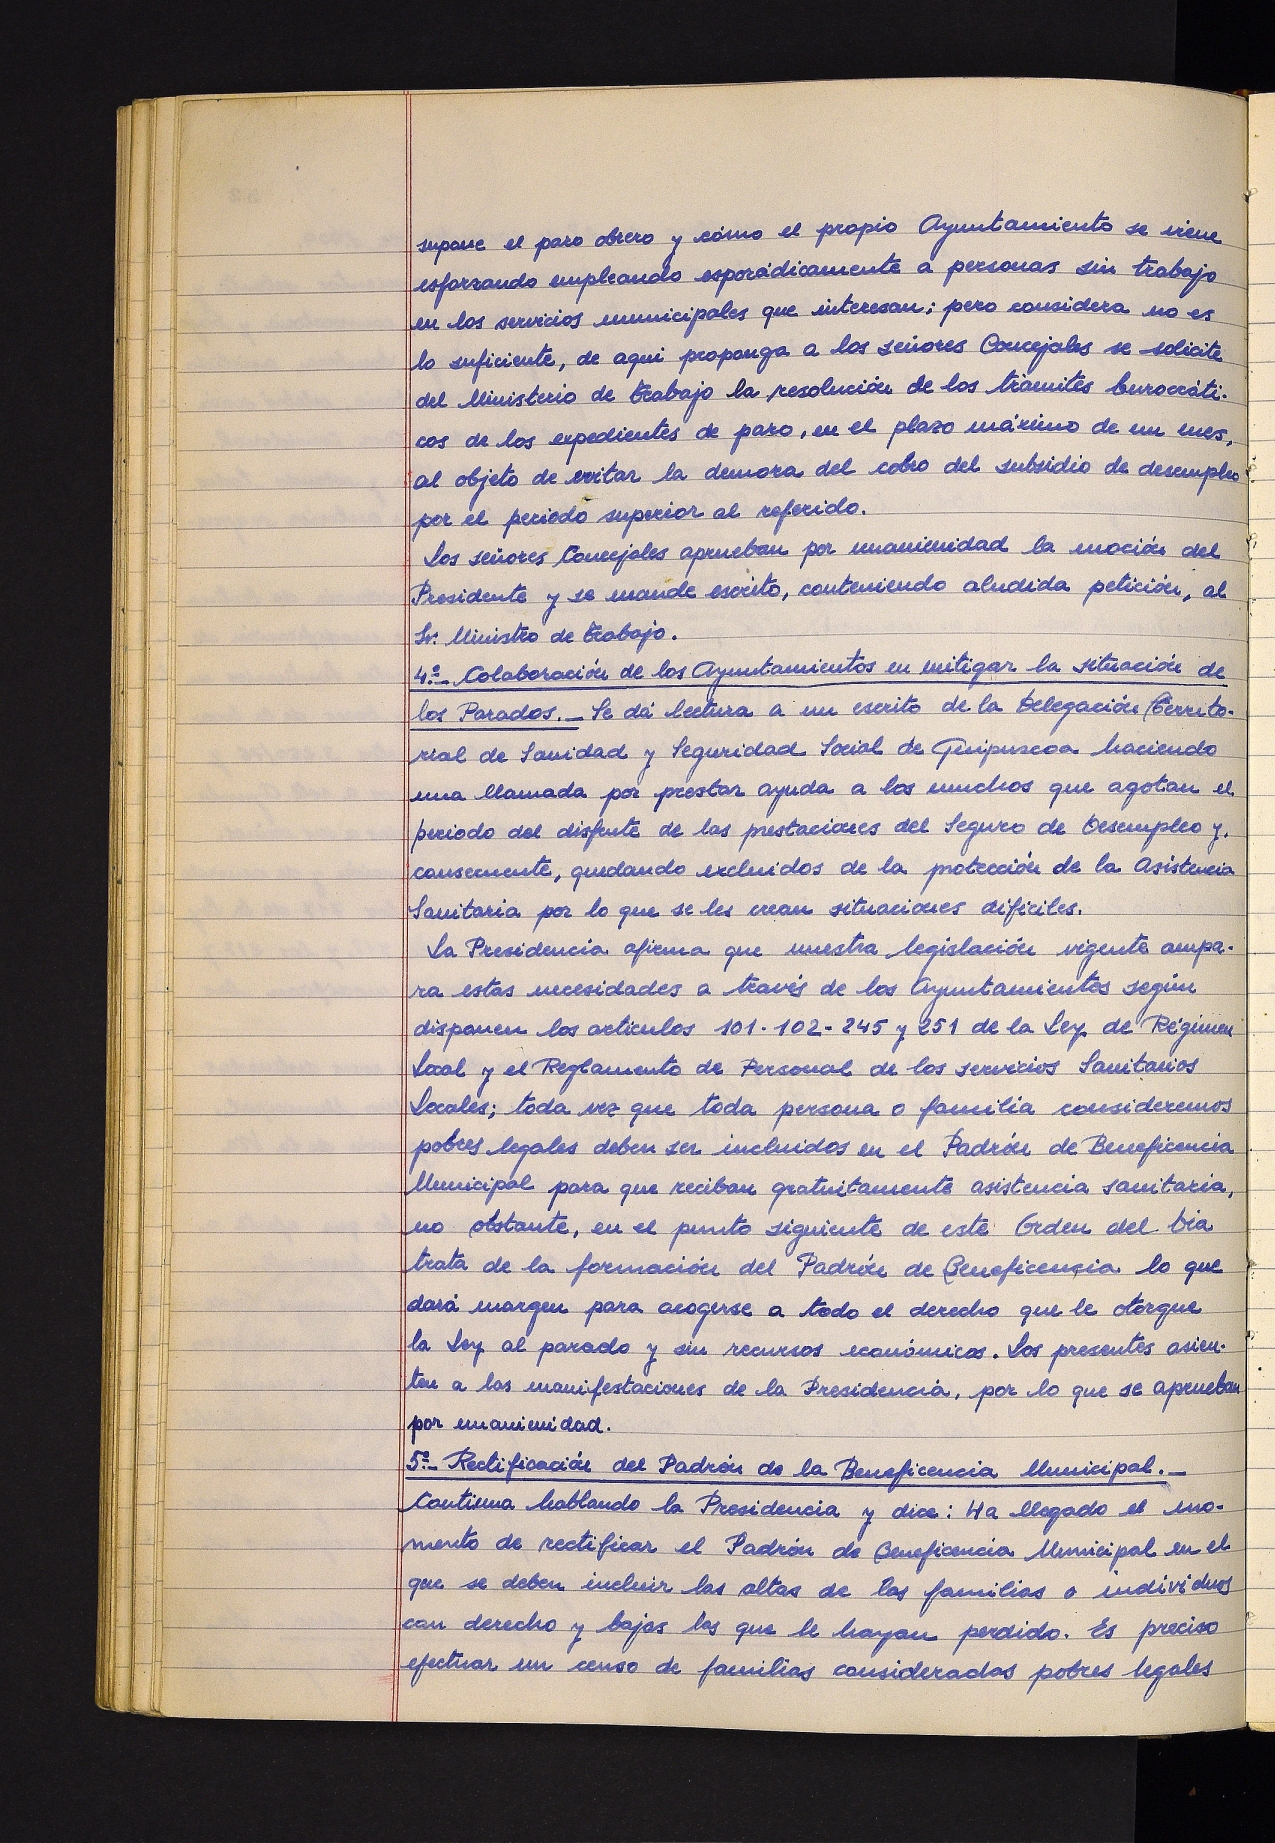 supone el paro obrero y cómo el propio Ayuntamiento se viene
esforzando empleando esporádicamente a personas sin trabajo
en los servicios municipales que interesan; pero considera no es
lo suficiente, de aqui proponga a los señores Concejales se solicite
del Ministerio de Trabajo la resolución de los trámites burocráti-
cos de los expedientes de paro, en el plazo máximo de un mes,
al objeto de evitar la demora del cobro del subsidio de desempleo
por el periodo superior al referido.
Los señores Concejales aprueban por unanimidad la moción del
Presidente y se mande escrito, conteniendo aludida petición, al
Sr. Ministro de Trabajo.
4º.- Colaboración de los Ayuntamientos en mitigar la situación de
los Parados.- Se dá lectura a un escrito de la Delegación Territo-
rial de Sanidad y Seguridad Social de Guipuscoa haciendo
una llamada por prestar ayuda a los muchos que agotan el
periodo del disfrute de las prestaciones del Seguro de Desempleo y,
consecuente, quedando excluidos de la protección de la Asistencia
Sanitaria por lo que se les crean situaciones dificiles.
La Presidencia afirma que nuestra legislación vigente ampa-
ra estas necesidades a través de los Ayuntamientos según
disponen los articulos 101-102-245 y 251 de la Ley de Régimen
Local y el Reglamento de Personal de los servicios Sanitarios
Locales; toda vez que toda persona o familia consideremos
pobres legales deben ser incluidos en el Padrón de Beneficencia
Municipal para que reciban gratuitamente asistencia sanitaria,
no obstante, en el punto siguiente de este Orden del Dia
trata de la formación del Padrón de Beneficencia lo que
dará margen para acogerse a todo el derecho que le otorgue
la Ley al parado y sin recursos económicos. Los presentes asien-
ten a las manifestaciones de la Presidencia, por lo que se aprueban
por unanimidad.
5º.- Rectificación del Padrón de la Beneficencia Municipal.-
Continua hablando la Presidencia y dice: Ha llegado el mo-
mento de rectificar el Padrón de Beneficencia Municipal en el
que se deben incluir las altas de las familias o individuos
con derecho y bajas los que le hayan perdido. Es preciso
efectuar un censo de familias consideradas pobres legales